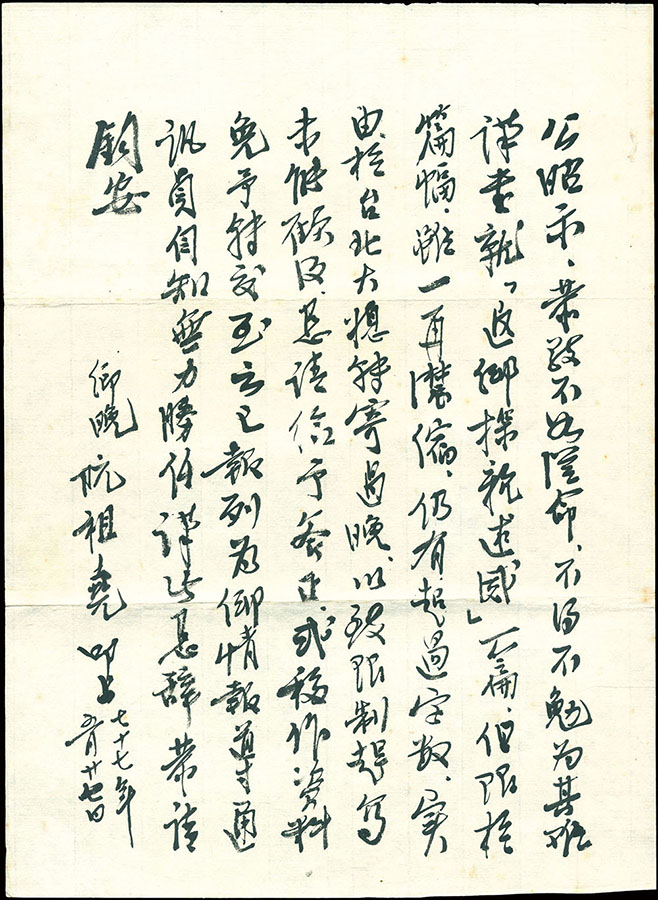 公昭示、恭敬不如從命、不得不勉為其難
謹書就「返鄉探親述感」一篇、但限於
篇幅、雖一再濃縮、仍有超過字數、實
由於台北大札轉寄過晚、以致限制趕寫
未能顧及、懇請惠予斧正、或移作資料
免予轉交至云已報列為鄉情報導通
訊員自知無力勝任謹此懇辭恭請
鈞安
鄉晚阮祖堯叩上
七十七年
五月廿七日